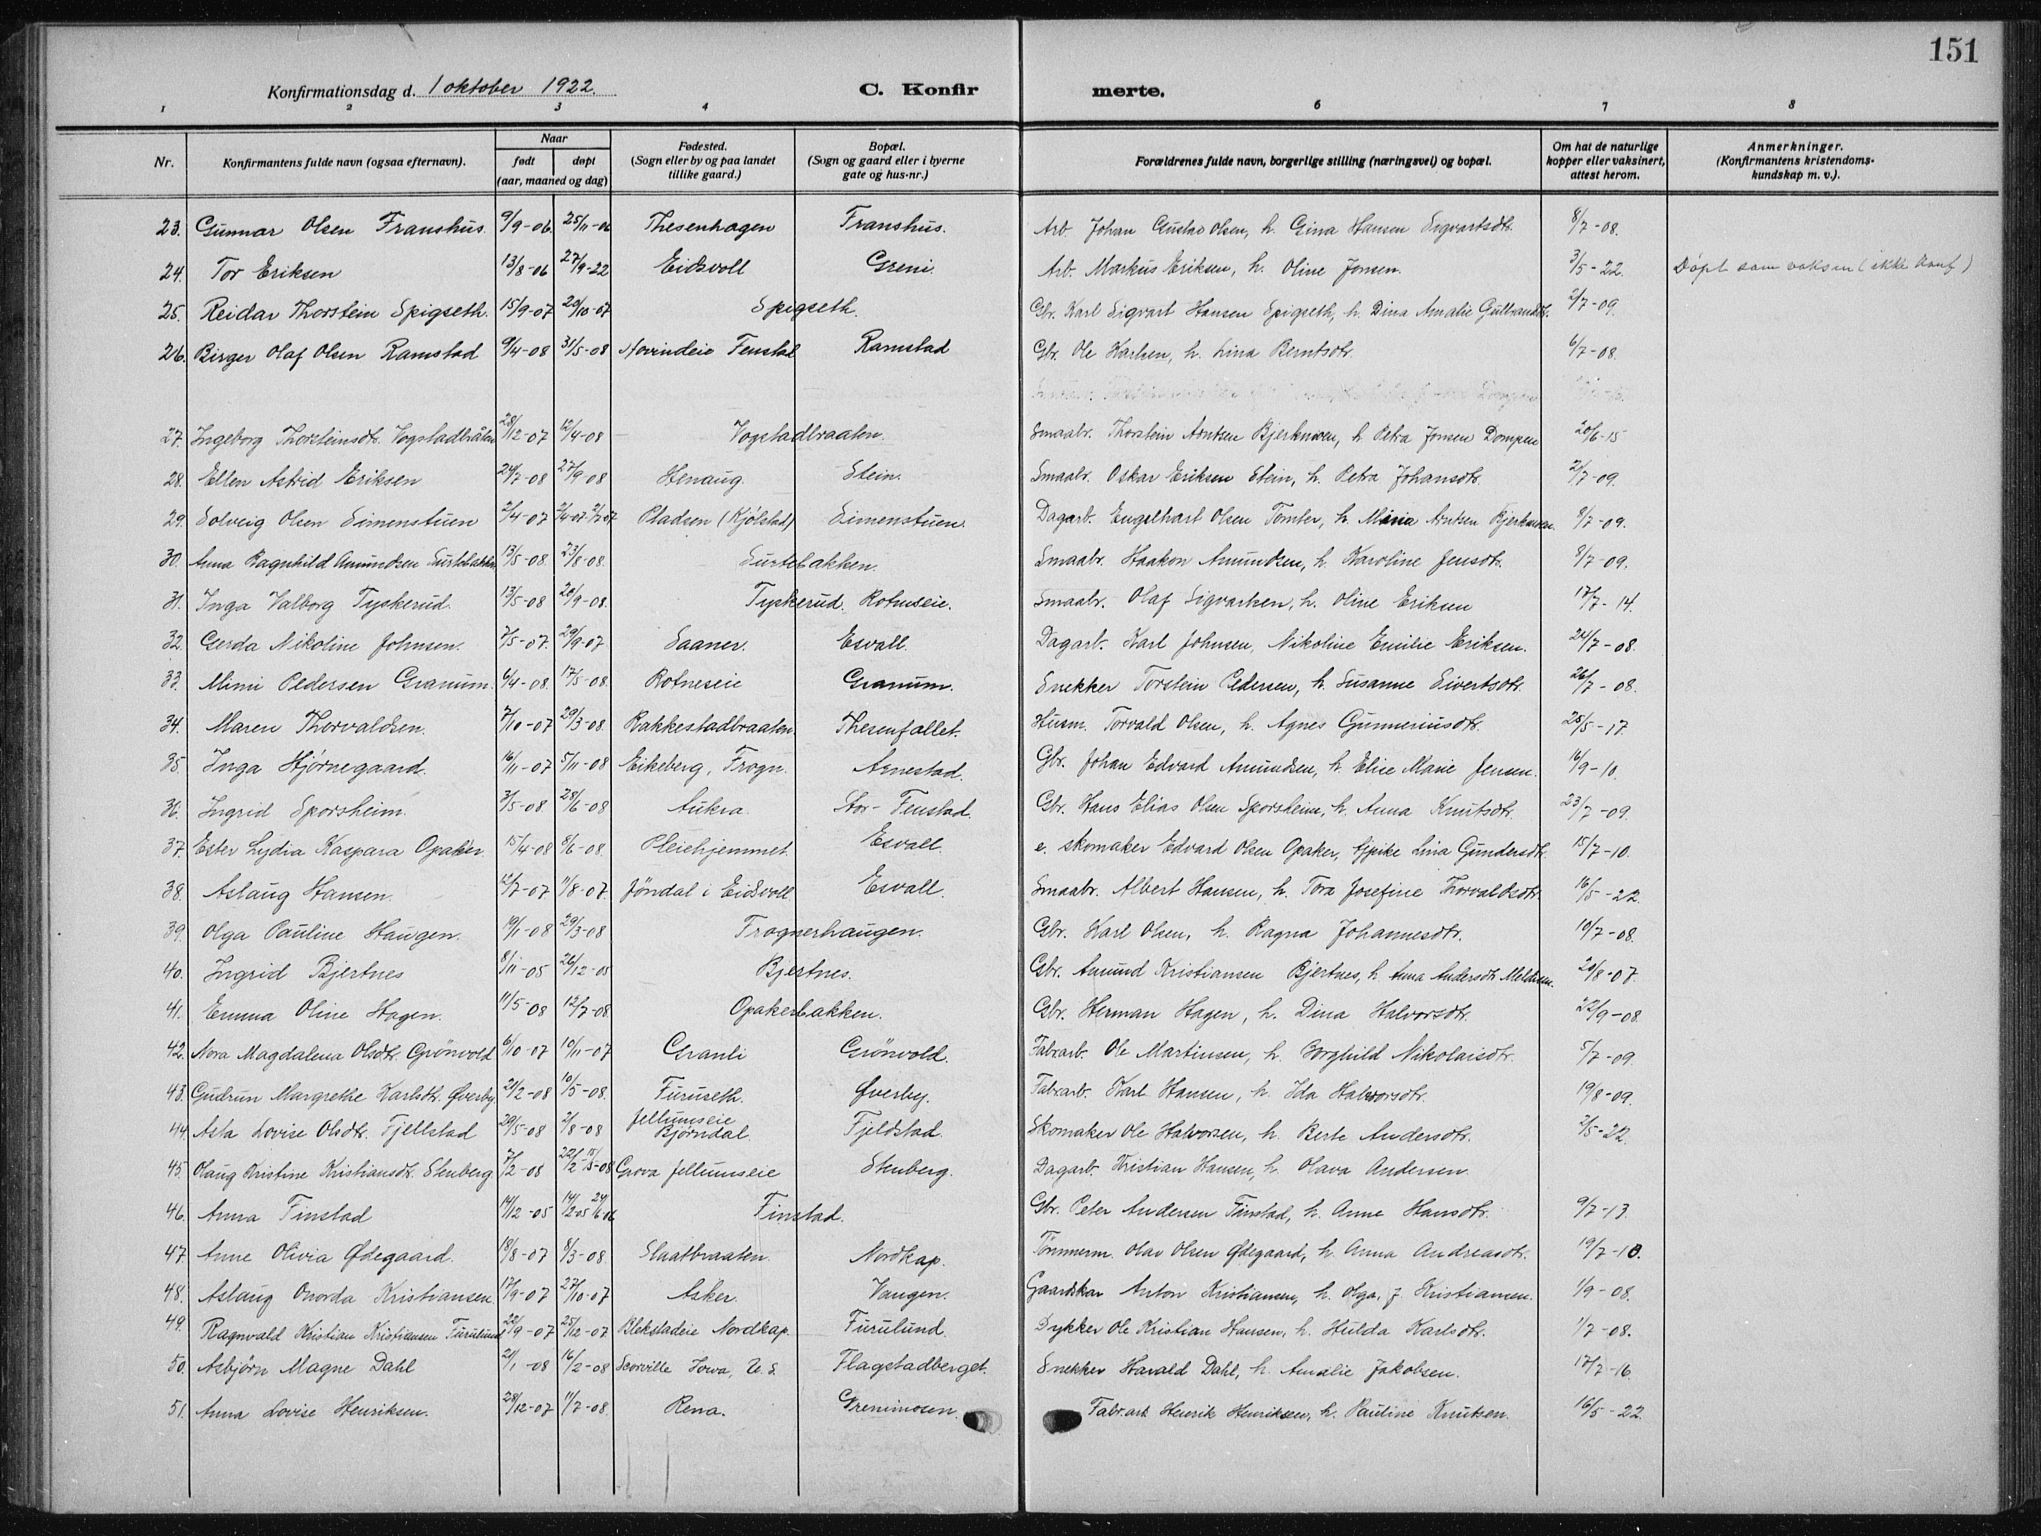 151
Konfirmationsdag d. 1 oktober 1922. C. Konfirmerte.
1 2 3 4 6 7 8
Nr. Konfirmantens fulde navn (ogsaa efternavn). Naar født døpt (aar, maaned og dag) Fødested. (Sogn eller by og paa landet tillike gaard.) Bopæl. (Sogn og gaard eller i byerne gate og hus-nr.) Forældrenes fulde navn, borgerlige stilling (næringsvei) og bopæl. Om hat de naturlige kopper eller vaksinert, attest herom. Anmerkninger. (Konfirmantens kristendoms-kundskap m. v.).
23. Gunnar Olsen Franshus. 9/9-06. 25/11-06 Thesenhagen Franshus. Arb. Johan Gustav Olsen, h. Gina Hansen Sigvartsdtr. 8/7-08.
24. Tor Eriksen 13/8-06 27/9-22 Eidsvoll Greni. Arb. Markus Eriksen, h. Oline Jonsen. 3/5-22. Døpt som voksen (ikke konf)
25. Reidar Thorstein Spigseth. 15/9-07 20/10-07 Spigseth. Gbr. Karl Sigvart Hansen Spigseth, h. Dina Amalie Gulbrandsdtr. 2/7-09.
26. Birger Olaf Olsen Ramstad 9/4-08 31/5-08 Hovindeie Fenstad Ramstad Gbr. Ole Karlsen, h. Lina Berntsdtr. 6/7-08.
27. Ingeborg Thorsteinsdtr. Vogstadbråten 28/12-07 12/4-08 Vogstadbraaten. Smaabr. Thorstein Arntsen Bjerknesen, h. Petra Jonsen Dompen 20/6-15
28. Ellen Astrid Eriksen 24/7-08 27/9-08 Henaug. Stein. Smaabr. Oskar Eriksen Stein, h. Petra Johansdtr. 2/7-09.
29. Solveig Olsen Simenstuen 2/4-07 Pladsen (Kjölstad) Simenstuen. Dagarb. Engelhart Olsen Tomter, h. Maria Arntsen Bjerknesen. 9/7-09.
30. Anna Ragnhild Amundsen Surtebakken 13/5-08. 23/8-08. Surtebakken. Smaabr. Haakon Amundsen, h. Karoline Jensdtr. 8/7-09.
31. Inga Valborg Tyskerud. 13/5-08 20/9-08. Tyskerud. Rotneseie. Smaabr. Olaf Sigvartsen, h. Oline Eriksen 17/7-14.
32. Gerda Nikoline Johnsen. 7/5-07. 29/9-07 Saaner. Esvall. Dagarb. Karl Johnsen, Nikoline Emilie Eriksen. 24/7-08.
33. Mimi Pedersen Granum. 6/4-08. 17/5-08. Rotneseie Granum. Snekker Torstein Pedersen, h. Susanne Sivertsdtr. 26/7-08.
34. Maren Thorvaldsen. 7/10-07 29/3-08. Rakkestadbraaten. Thesenfallet. Husm. Torvald Olsen, h. Agnes Gunneriusdtr. 25/5-17.
35. Inga Hjørnegaard. 16/11-07 5/11-08 Eikeberg, Frogn. Arnestad. Gbr. Johan Edvard Amundsen, h. Elise Marie Jensen. 16/9-10.
36. Ingrid Sporsheim. 3/5-08 28/6-08 Aukra. Stor-Fenstad. Gbr. Hans Elias Olsen Sporsheim, h. Anna Knutsdtr. 23/7-09.
37. Ester Lydia Kaspara Opaker. 15/4-08 8/6-08. Pleiehjemmet. Esvall. e. skomaker Edvard Olsen Opaker, Lina Gundersdtr. 15/7-10.
38. Aslaug Hansen. 12/7-07. 11/8-07. Jöndal i Eidsvoll Esvall. Smaabr. Albert Hansen, h. Tora Josefine Thorvaldsdtr. 16/5-22.
39. Olga Pauline Haugen. 19/1-08 29/3-08 Trognerhaugen. Gbr. Karl Olsen, h. Ragna Johannesdtr. 10/7-08.
40. Ingrid Bjertnes 8/11-05 26/12-05 Bjertnes. Gbr. Amund Kristiansen Bjertnes, h. Anna Andersdtr. 20/8-07.
41. Emma Oline Hagen. 11/5-08 12/7-08. Opakerbakken. Gbr. Herman Hagen, h. Dina Halvorsdtr. 22/9-08.
42. Nora Magdalena Olsdtr. Grönvold 6/10-07 10/11-07 Granli Grönvold. Fabrarb. Ole Martinsen, h. Borghild Nikolaisdtr. 5/7-09.
43. Gudrun Margrethe Karlsdtr. Øverby 21/2-08 10/5-08. Furuseth. Øverby. Fabrarb. Karl Hansen, h. Ida Halvorsdtr. 19/8-09.
44. Asta Lovise Olsdtr. Fjellstad 29/5-08 2/8-08 Jellumseie Björndal. Fjeldstad. Skomaker Ole Halvorsen, h. Berte Andersdtr. 2/5-22.
45. Olaug Kristine Kristiansdtr. Stenberg. 7/2-08 Grova Jellumseie Stenberg. Dagarb. Kristian Hansen, h. Olava Andersen.
46. Anna Finstad 14/12-05 Finstad. Gbr. Peter Andersen Finstad, h. Anne Hansdtr. 9/7-13.
47. Anne Olivia Ødegaard. 18/8-07 8/3-08. Slaatbraaten. Nordkap. Tömmerm. Olav Olsen Ødegaard, h. Anna Andreasdtr. 19/7-10.
48. Aslaug Onorda Kristiansen. 17/9-07 27/10-07 Asker. Vangen. Gaardskar Anton Kristiansen, h. Olga, f. Kristiansen. 1/9-08.
49. Ragnvald Kristian Kristiansen Furulund 22/9-07 25/12-07 Blekstadeie Nordkap. Furulund. Dykker Ole Kristian Hansen, h. Hulda Karlsdtr. 1/7-08.
50. Asbjörn Magne Dahl 21/1-08 16/2-08 Scorville Iowa, U.S. Flagstadberget. Snekker Harald Dahl, h. Amalie Jakobsen. 17/7-16.
51. Anna Lovise Henriksen. 28/12-07 11/7-08. Rena. Grenimosen. Fabr.arb. Henrik Henriksen, h. Pauline Knutsen. 16/5-22.